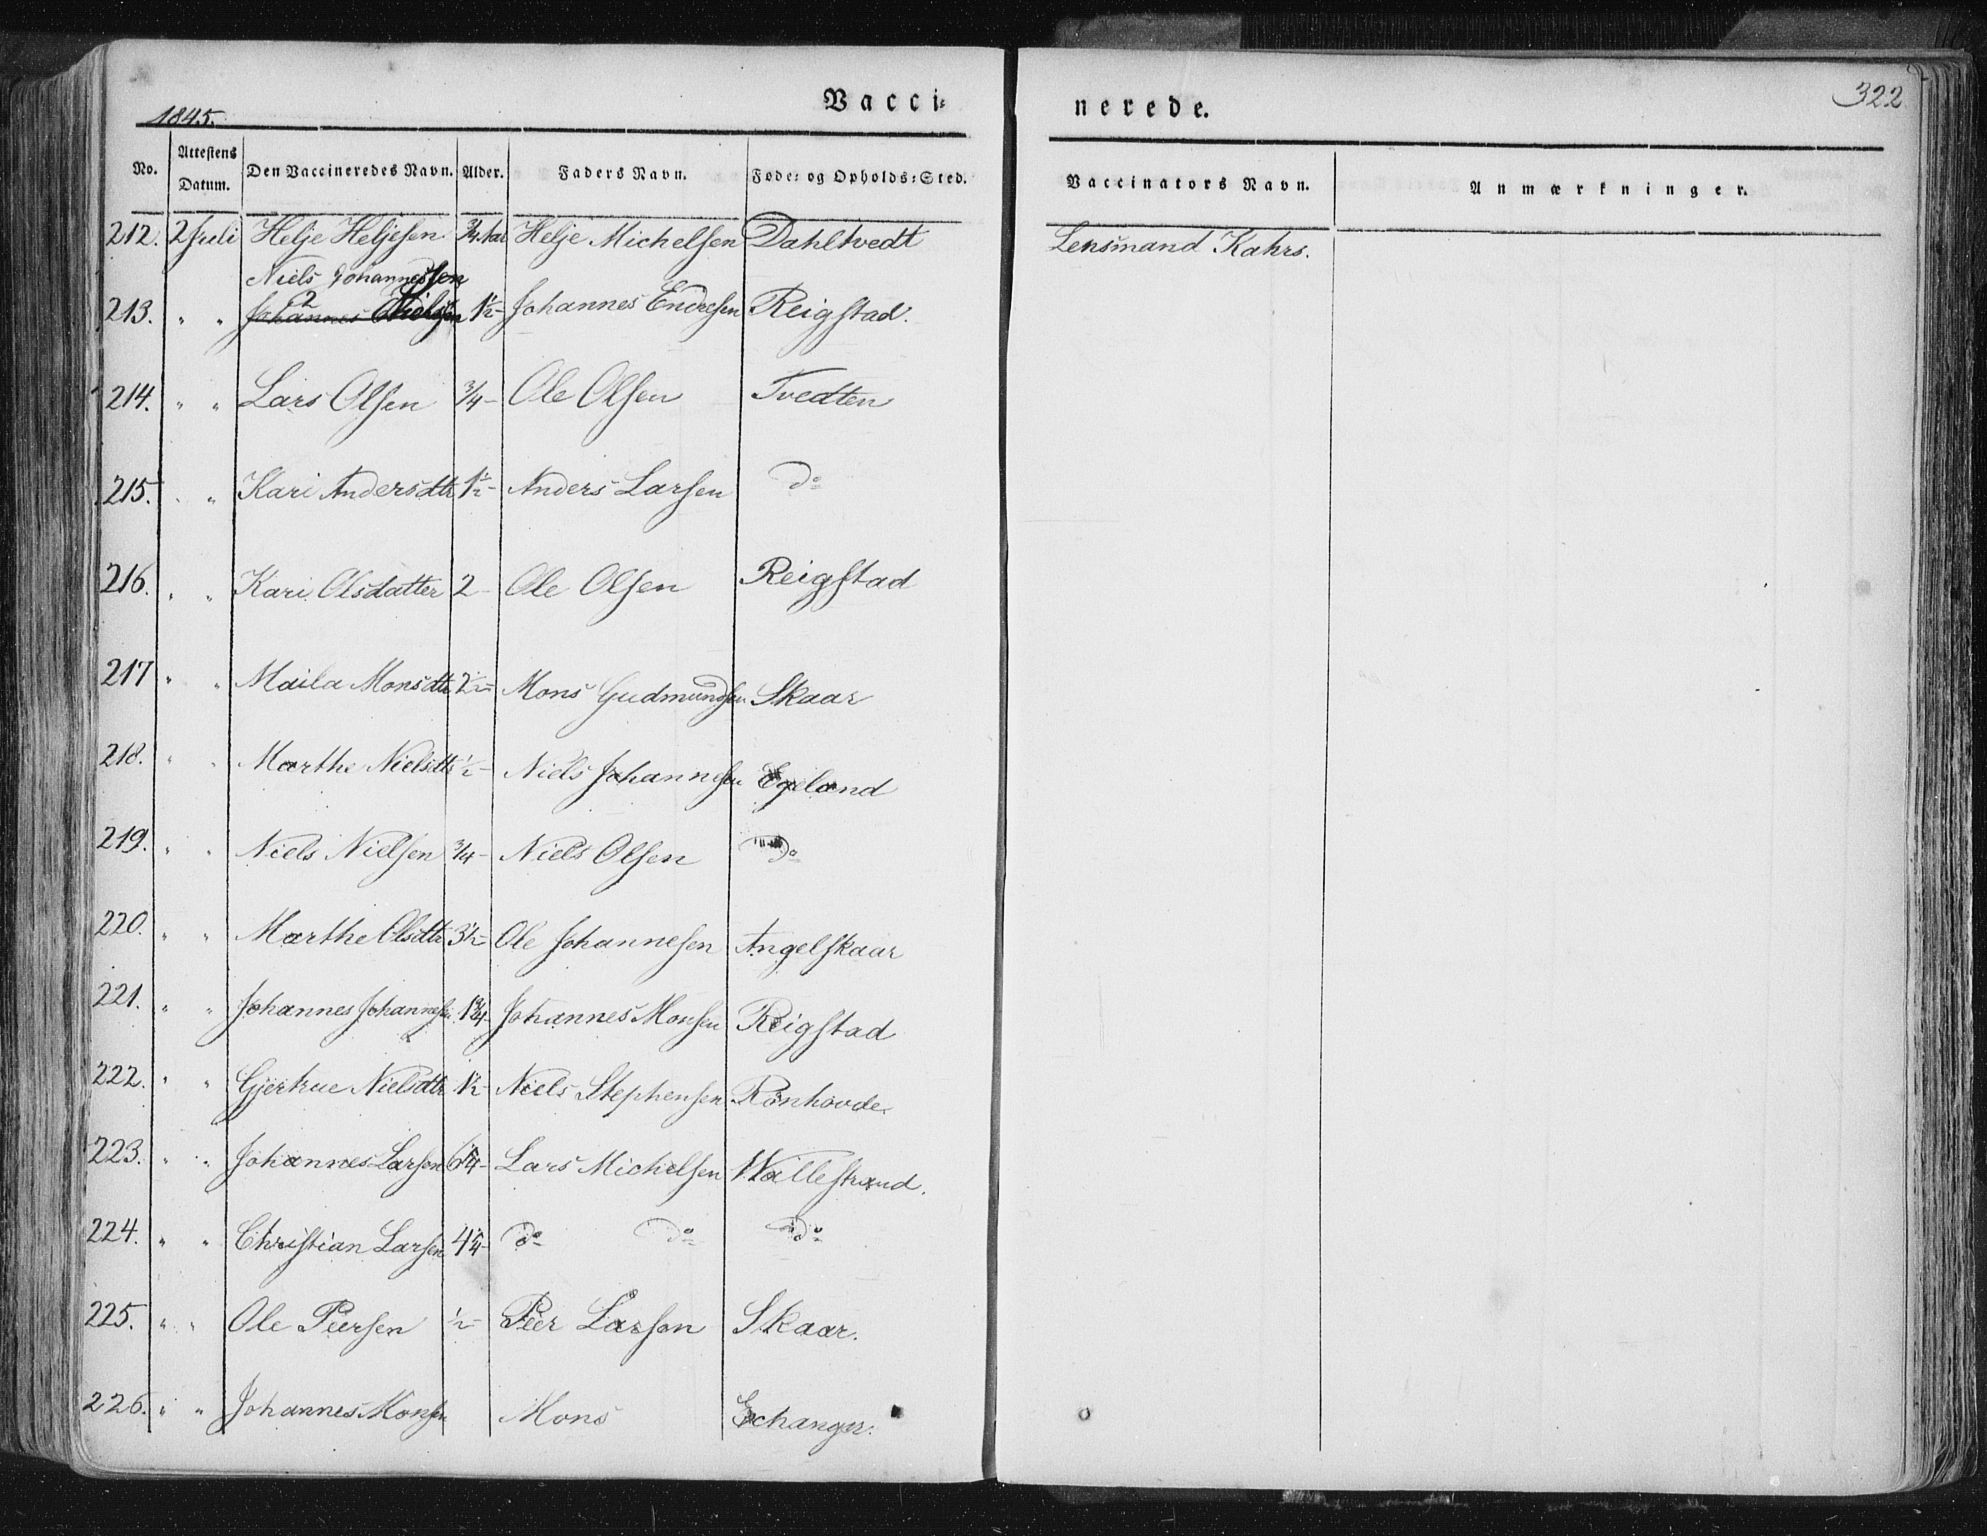 1845. Vacci= nerede. 322
No. Attestens Datum. Den Vaccineredes Navn. Alder. Faders Navn. Føde= og Opholds=Sted. Vaccinators Navn. Anmærkninger.
212. 2 Juli Helje Heljesen 3/4 Aar Helje Michelsen Dahltvedt Lensmand Kahrs.
Niels Johannessen
213. " " Johannes Nielsen 1 1/2 - Johannes Endresen Reigstad.
214. " " Lars Olsen 3/4 - Ole Olsen Tvedten
215. " " Kari Andersdtr 1 1/2 - Anders Larsen do
216. " " Kari Olsdatter 2 - Ole Olsen Reigstad
217 " " Maila Monsdtr 2 1/2 - Mons Gudmundsen Skaar
218. " " Marthe Nielsdtr 1/2 - Niels Johannesen Egeland
219. " " Niels Nielsen 3/4 - Niels Olsen do
220. " " Marthe Olsdtr 3 1/2 - Ole Johannesen Angelskaar
221. " " Johannes Johannesen 1 3/4 - Johannes Monsen Reigstad
222. " " Gjertrue Nielsdtr 1 1/2 - Niels Stephensen Rønhovde.
223. " " Johannes Larsen 6 1/4 - Lars Michelsen Wallestrand.
224. " " Christian Larsen 4 1/4 - do do do
225. " " Ole Peersen 1/2 - Peer Larsen Skaar.
226. " " Johannes Monsen Mons Echanger.